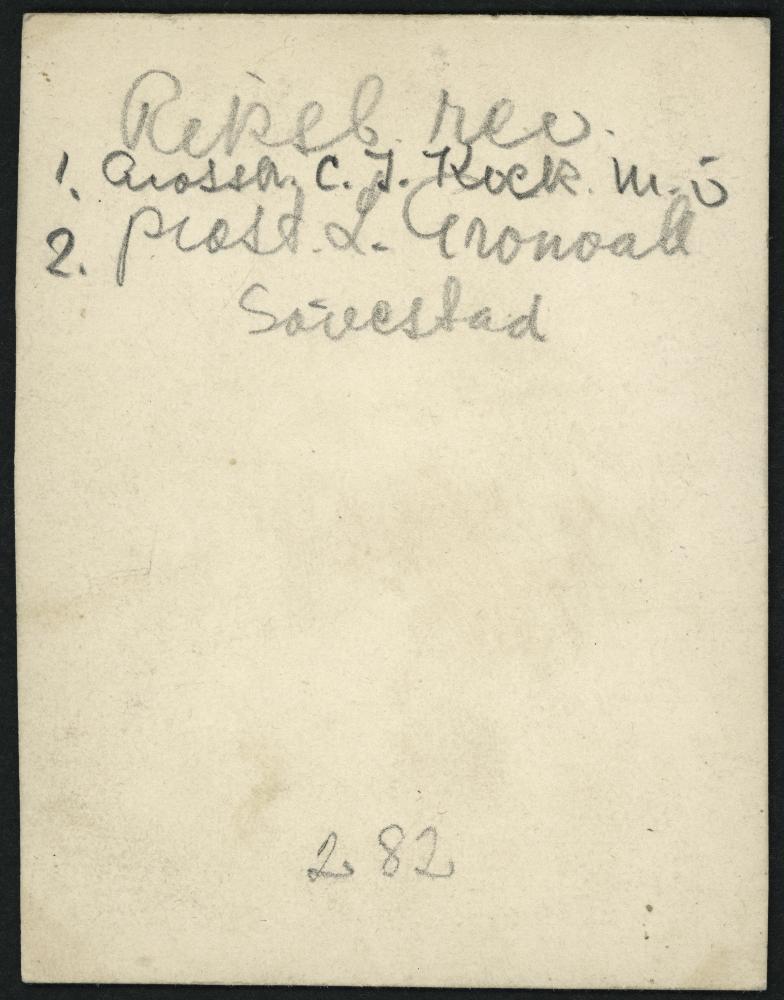 Riksb. rev.
1. Grossh. C. J. Kock. m. ö
2. prost. L. Gronvall
Sövestad
282